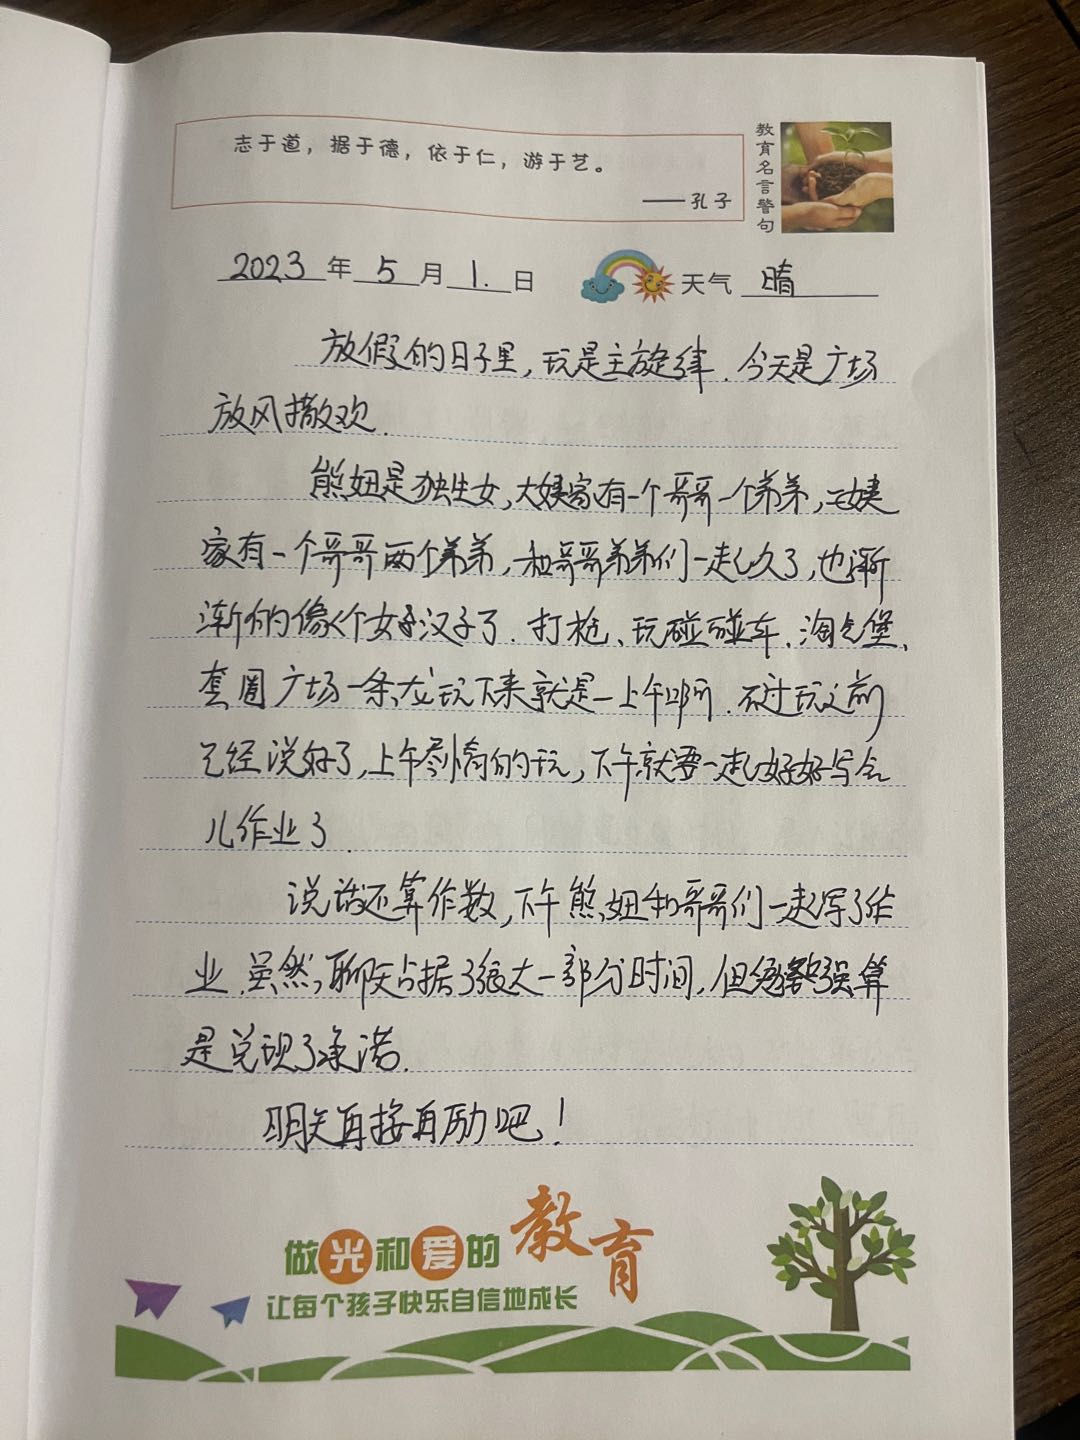 志于道，据于德，依于仁，游于艺。
——孔子
教育名言警句
2023年5月1.日 天气 晴
放假的日子里，玩是主旋律．今天是广场
放风撒欢．
熊妞是独生女，大姨家有一个哥哥一个弟弟，二姨
家有一个哥哥两个弟弟，和哥哥弟弟们一起久了，也渐
渐的像个女汉子了．打枪、玩碰碰车、淘气堡、
套圈广场一条龙玩下来就是一上午．不过玩之前
已经说好了，上午尽情的玩，下午就要一起好好写会
儿作业了．
说话还算作数，下午熊妞和哥哥们一起写了作
业．虽然，聊天占据了很大一部分时间，但勉强算
是兑现了承诺．
明天再接再励吧！
做光和爱的教育
让每个孩子快乐自信地成长